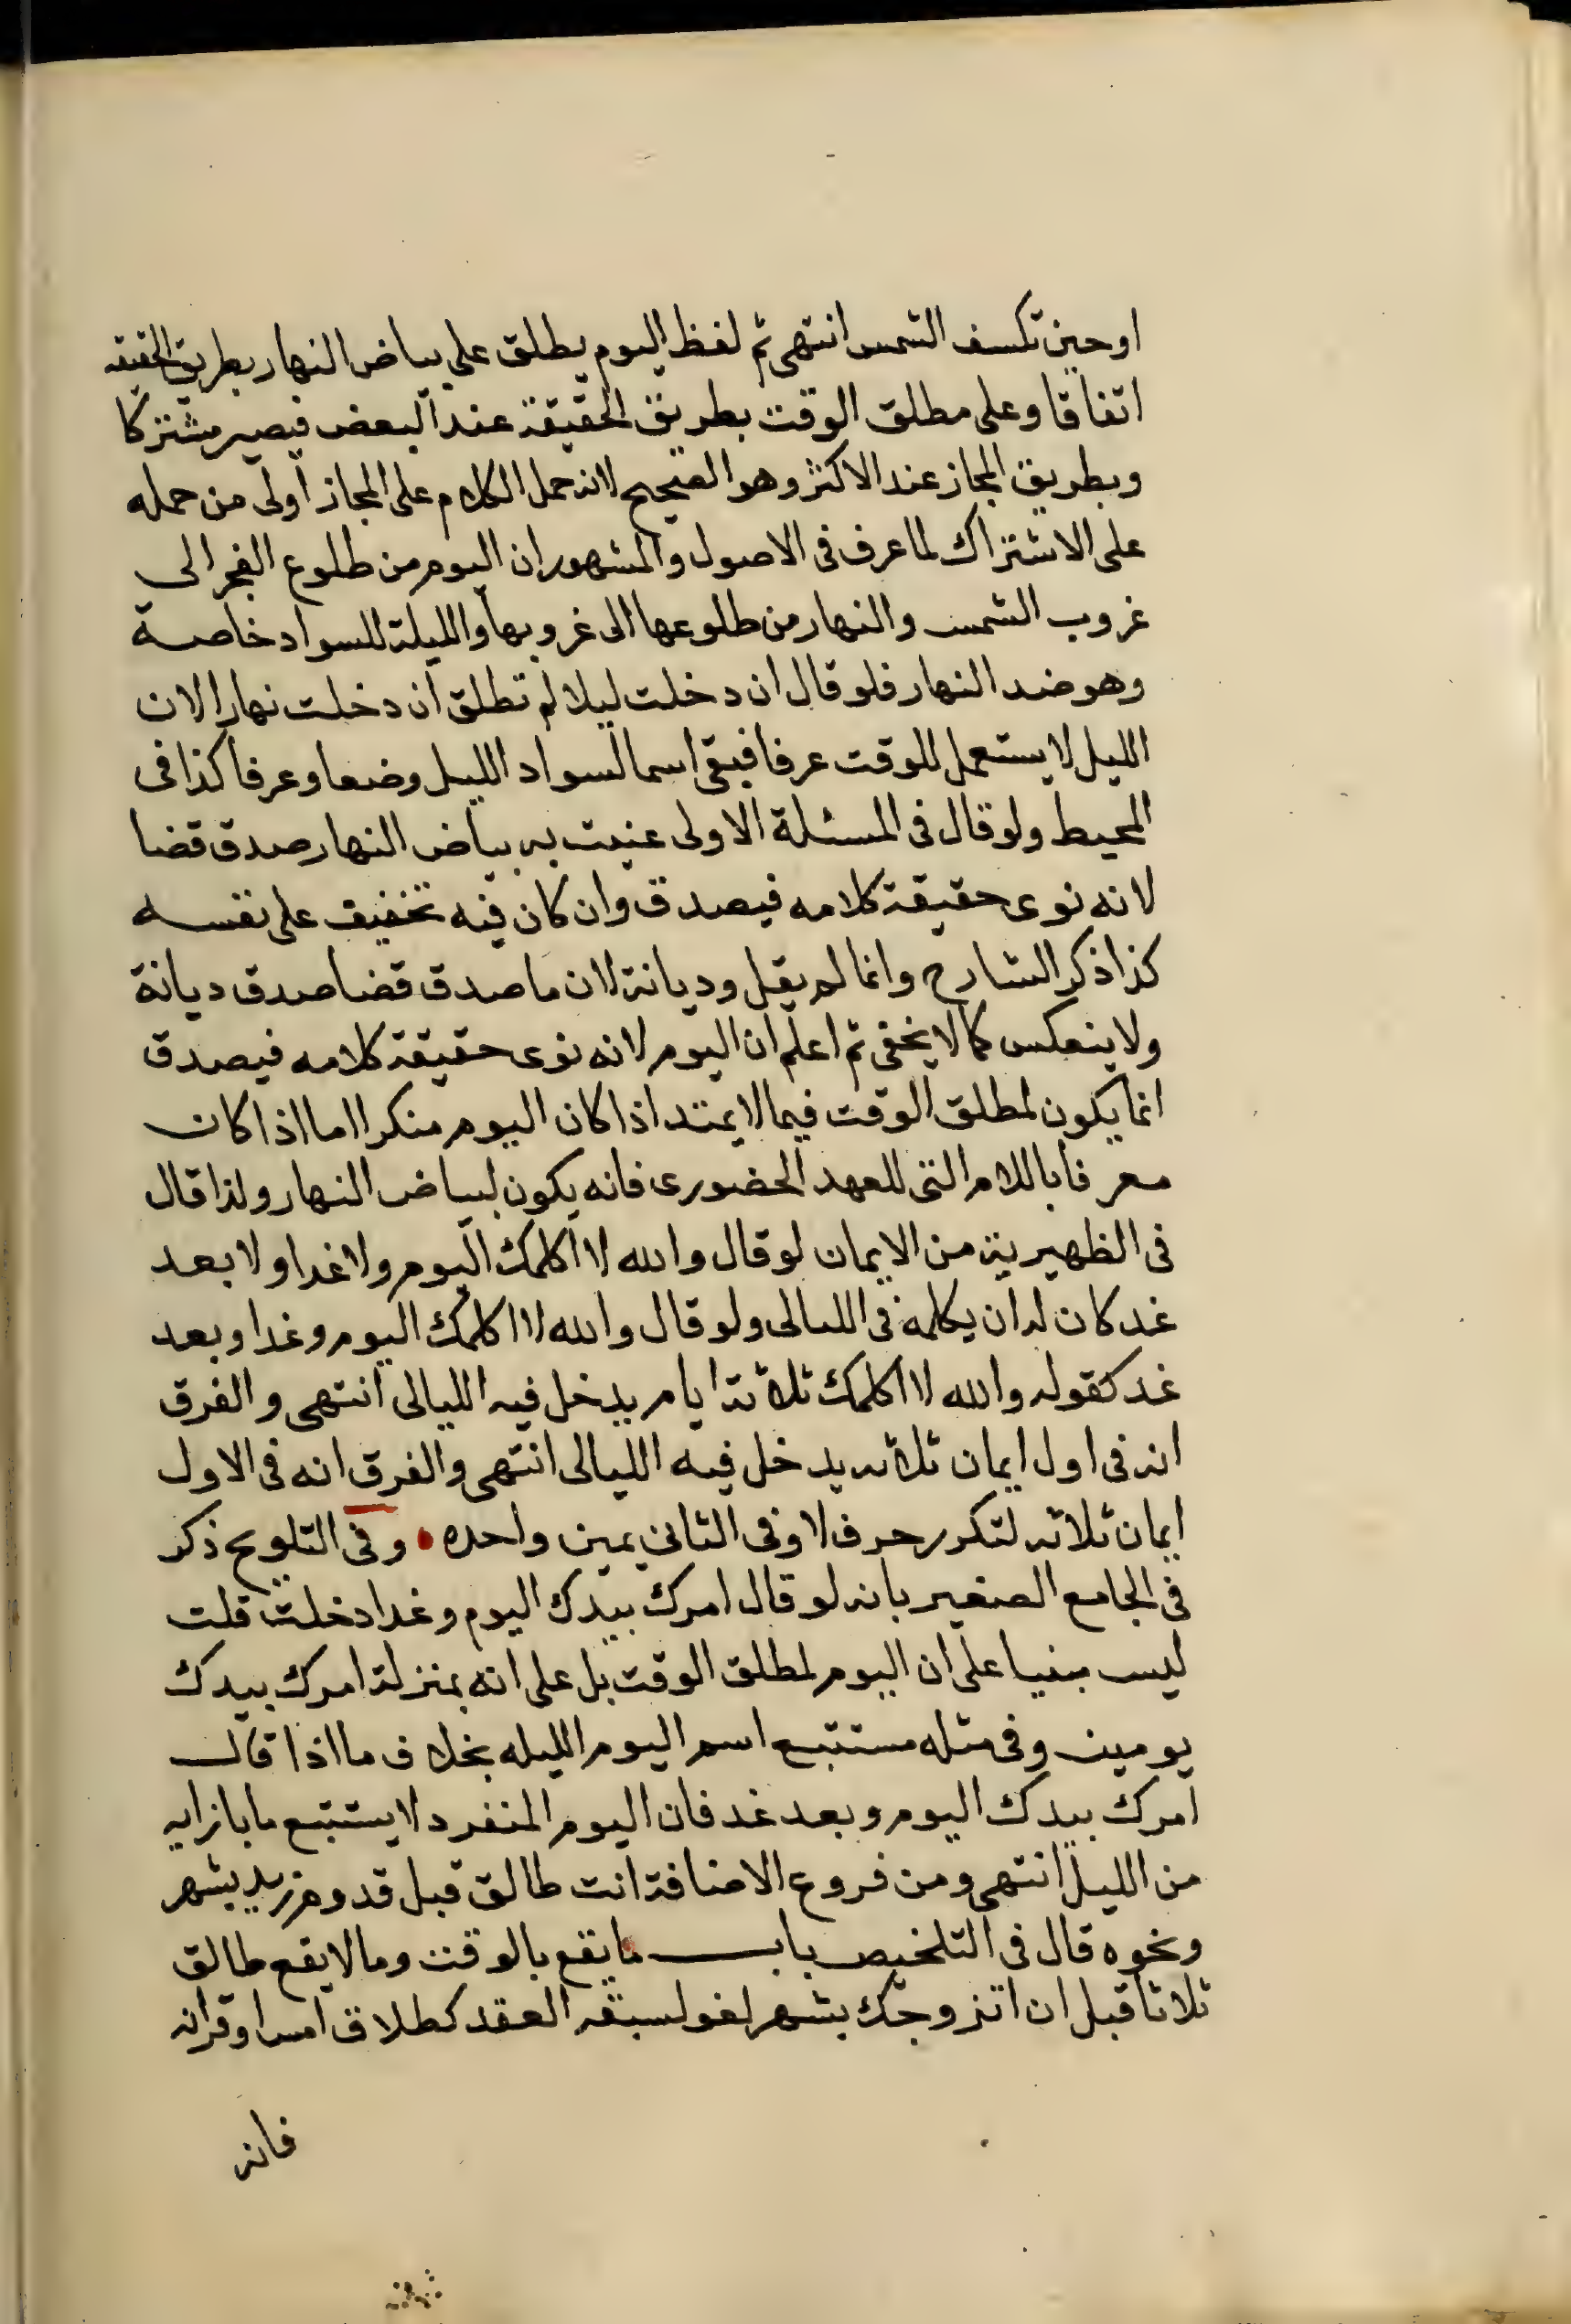 او حين تكسف الشمس انتهى ثم لفظ اليوم يطلق على بياض النهار بطريق الحقيقه
اتفاقا وعلى مطلق الوقت بطريق الحقيقة عند البعض فيصير مشتركا
وبطريق المجاز عند الاكثر وهو الصحيح لانه حمل الكلام على المجاز اولى من حمله
على الاشتراك لما عرف فى الاصول والمشهور ان اليوم من طلوع الفجر الى
غروب الشمس والنهار من طلوعها الى غروبها والليلة للسواد خاصة
وهو ضد النهار فلو قال ان دخلت ليلا لم تطلق ان دخلت نهارا لان
الليل لا يستعمل للوقت عرفا فبقى اسما لسواد الليل وضعا وعرفا كذا فى
المحيط ولو قال فى المسئلة الاولى عنيت به بياض النهار صدق قضا
لانه نوى حقيقة كلامه فيصدق وان كان فيه تخفيف على نفسه
كذا ذكر الشارح وانما لم يقل وديانة لان ما صدق قضا صدق ديانة
ولا ينعكس كما لا يخفى ثم اعلم ان اليوم لانه نوى حقيقة كلامه فيصدق
انما يكون لمطلق الوقت فيما لا يمتد اذا كان اليوم منكرا اما اذا كان
معرفا باللام التى للعهد الحضورى فانه يكون لبياض النهار ولذا قال
فى الظهيرية من الايمان لو قال والله لا اكلمك اليوم ولا غدا ولا بعد
غد كان له ان يكلمه فى الليالى ولو قال والله لا اكلمك اليوم وغدا وبعد
غد كقوله والله لا اكلمك ثلاثة ايام يدخل فيه الليالى انتهى والفرق
انه فى اول ايمان ثلاثه يدخل فيه الليالى انتهى والفرق انه فى الاول
ايمان ثلاثه لتكرر حرف لا وفى الثانى يمين واحده • وفى التلويح ذكر
فى الجامع الصغير بانه لو قال امرك بيدك اليوم وغدا دخلت قلت
ليس مبنيا على ان اليوم لمطلق الوقت بل على انه بمنزلة امرك بيدك
يومين وفى مثله مستتبع اسم اليوم الليله بخلاف ما اذا قال
امرك بيدك اليوم وبعد غد فان اليوم المنفرد لا يستتبع ما بازايه
من الليل انتهى ومن فروع الاضافة انت طالق قبل قدوم زيد بشهر
ونحوه قال فى التلخيص باب ما يقع بالوقت وما لا يقع طالق
ثلاثا قبل ان اتزوجك بشهر لغو لسبقه العقد كطلاق امس او قرانه
فانه